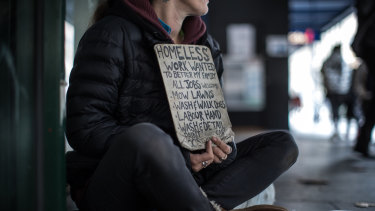 HOMELESS
WORK WANTED
TO BETTER MY FAMILY
ALL JOBS WELCOME
MOW LAWNS
WASH & WALK DOGS
LABOUR HAND
WASH & DETAIL